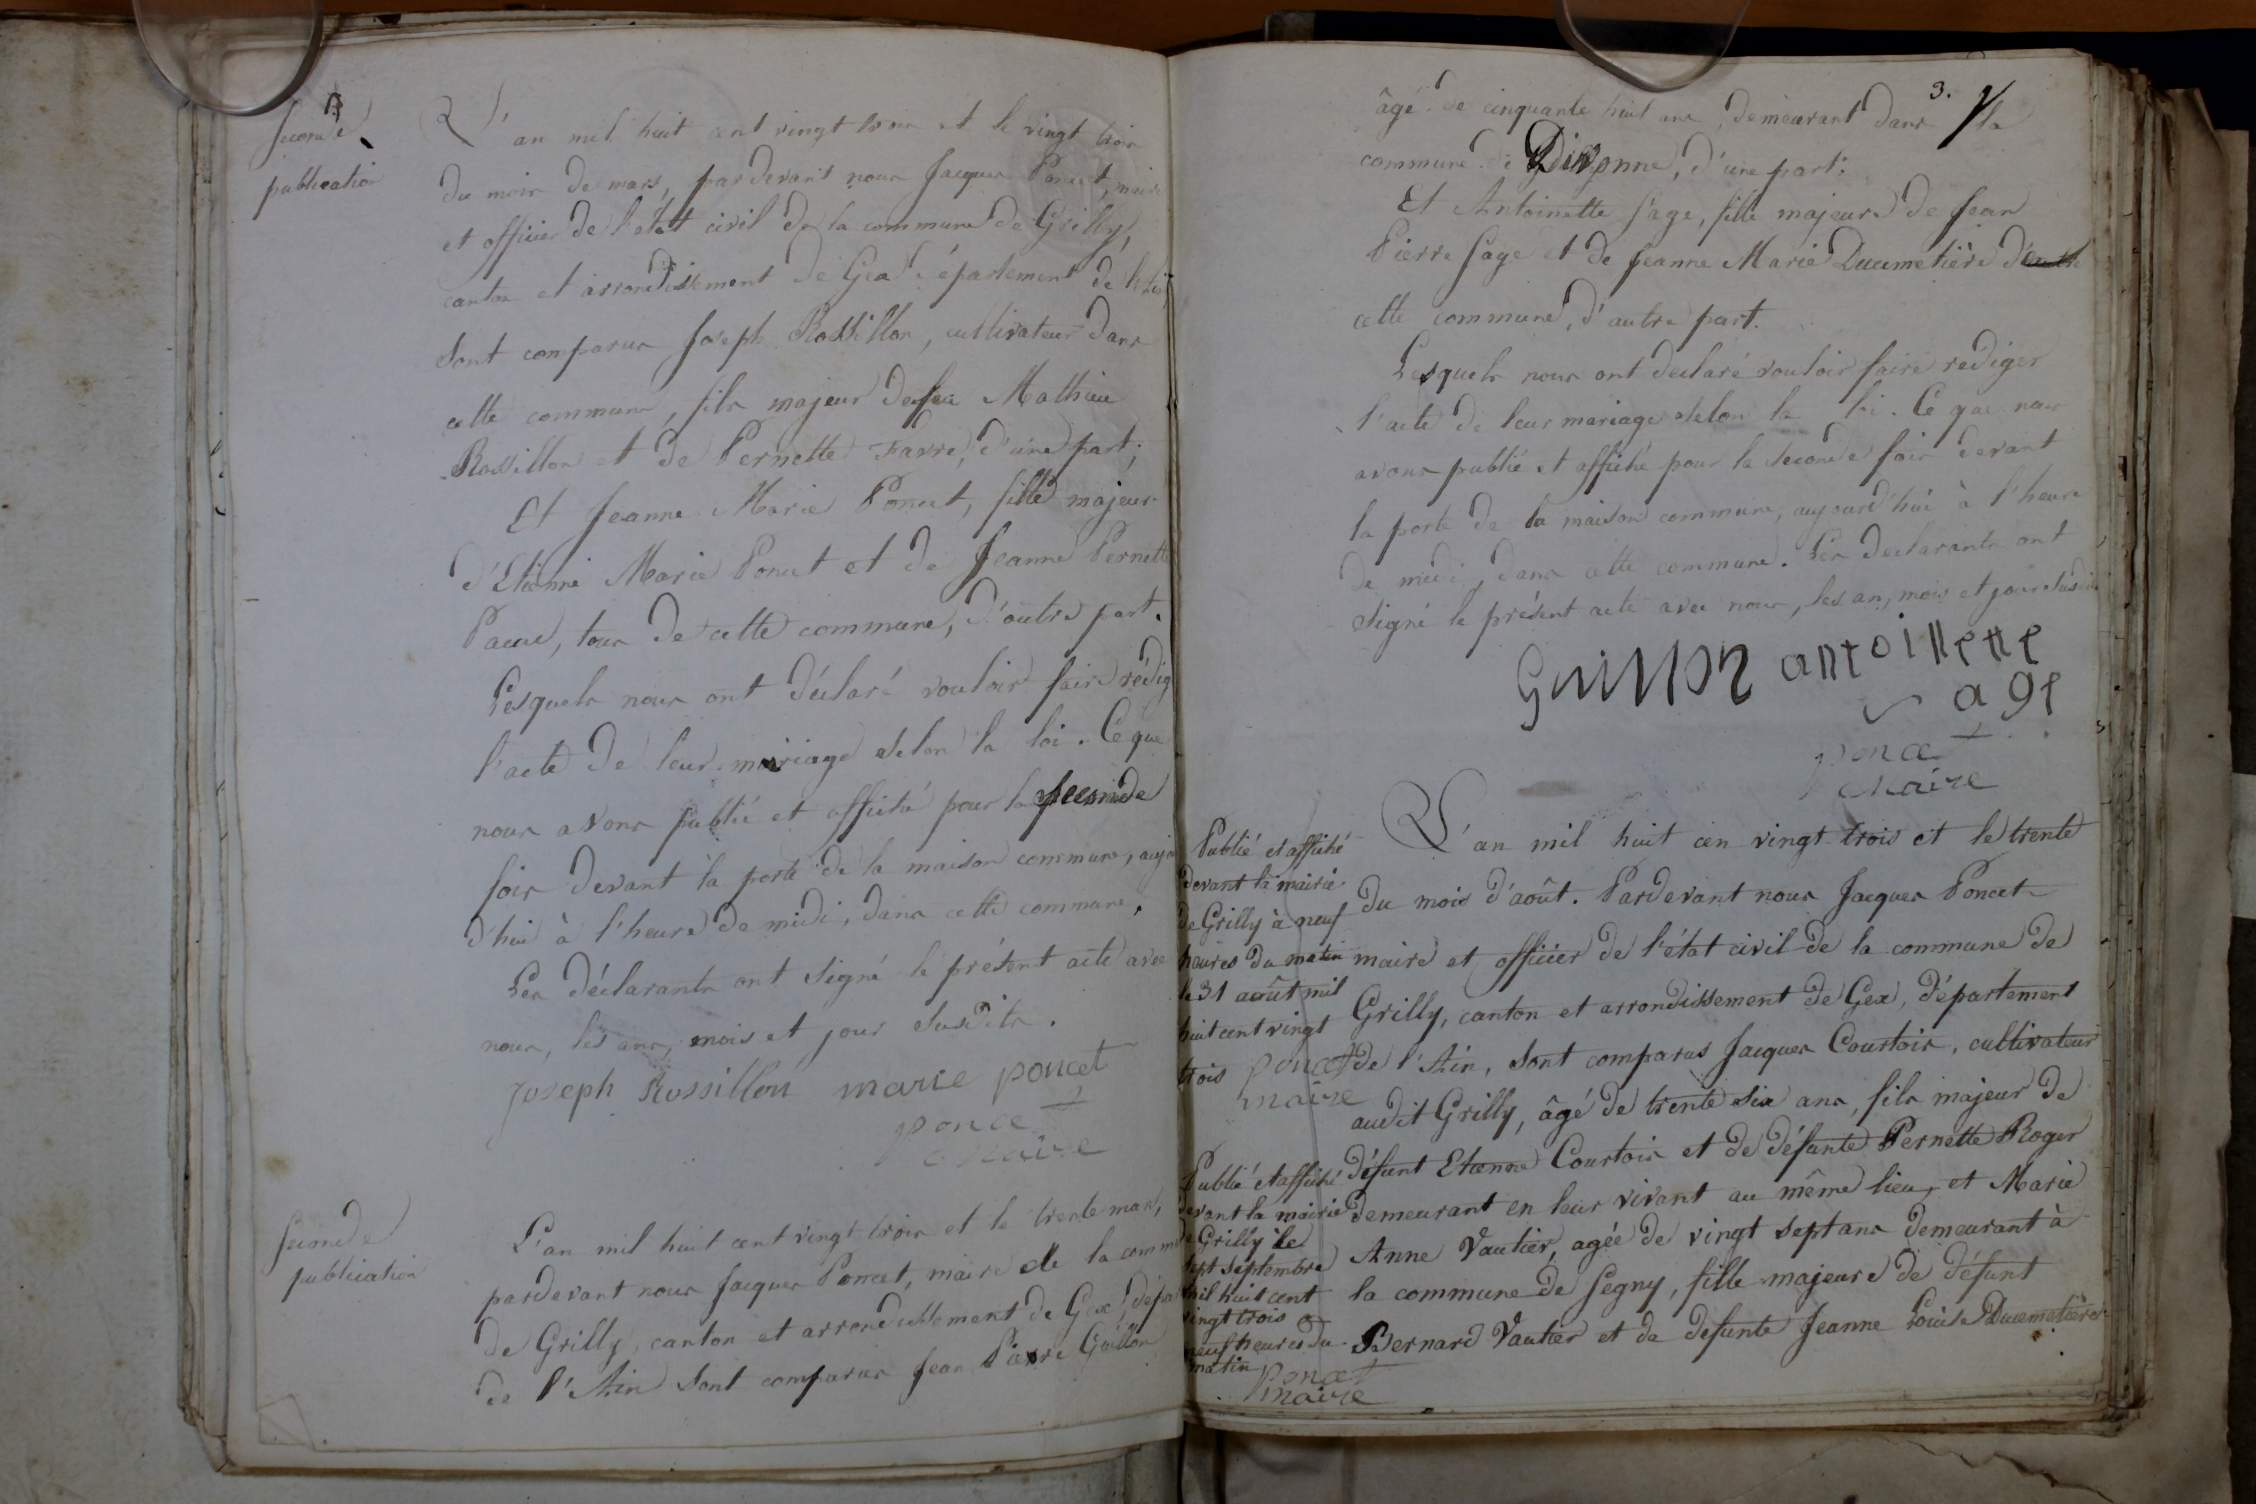 seconde
publication
L'an mil huit cent vingt trois et le vingt trois
du mois de mars, pardevant nous Jacques Poncet, maire
et officier de l'état civil de la commune de Grilly,
canton et arrondissement de Gex département de l'Ain,
sont comparus Joseph Rossillon, cultivateur dans
cette commune, fils majeur de feu Mathieu
Rossillon et de Pernette Favre, d'une part;
Et Jeanne Marie Poncet, fille majeure
d'Etienne Marie Poncet et de Jeanne Pernette
tous de cette commune, d'autre part.
Lesquels nous ont déclaré vouloir faire rédig
l'acte de leur mariage selon la loi. Ce que
nous avons publié et affiché pour la seconde
fois devant la porte de la maison commune, aujour
d'hui à l'heure de midi, dans cette commune.
Les déclarants ont signé le présent acte avec
nous, les ans, mois et jour susdits.
Joseph Rossillon marie poncet
poncet
maire
seconde
publication
L'an mil huit cent vingt trois et le trente mars,
pardevant nous Jacques Poncet, maire de la commune
de Grilly, canton et arrondissement de Gex, dépa
de l'Ain sont comparus Jean Pierre Guillon
3.
âgé de cinquante huit ans, demeurant dans la
commune de Divonne, d'une part;
Et Antoinette Sage, fille majeure de Jean
Pierre Sage et de Jeanne Marie Ducimetière de
cette commune, d'autre part.
Lesquels nous ont declaré vouloir faire rediger
l'acte de leur mariage selon la loi. Ce que nous
avons publié et affiché pour la seconde fois devant
la porte de la maison commune, aujourd'hui à l'heure
de midi, dans cette commune. Les declarants ont
signé le présent acte avec nous, les an, mois et jour susdits
Guillon antoillette
sage
poncet
maire
L'an mil huit cen vingt trois et le trente
du mois d'août. Pardevant nous Jacques Poncet
maire et officier de l'état civil de la commune de
Grilly, canton et arrondissement de Gex, département
de l'Ain, sont comparus Jacques Courtois, cultivateur
audit Grilly, âgé de trente six ans, fils majeur de
défunt Etienne Courtois et de défunte Pernette Roger
demeurant en leur vivant au même lieu, et Marie
Anne Vautier, agée de vingt sept ans demeurant à
la commune de Segny, fille majeure de défunt
Bernard Vautier et de defunte Jeanne Louise Ducimetière
Publié et affiché
devant la mairie
de Grilly à neuf
heures du matin
le 31 août mil
huit cent vingt
trois Poncet
maire
Publié et affiché
devant la mairie
de Grilly le
sept septembre
mil huit cent
vingt trois à
neuf heures du
matin Poncet
maire